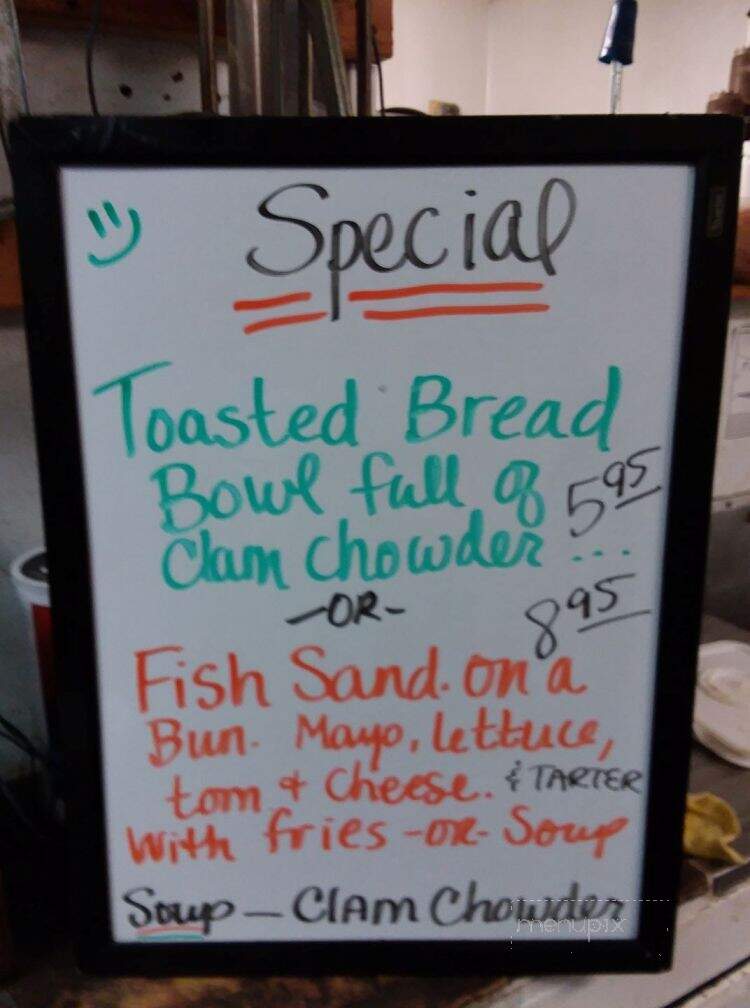 Special
Toasted Bread
Bowl full of 5.95
Clam Chowder ...
-OR- 8.95
Fish Sand. on a
Bun. Mayo, lettuce,
tom + Cheese. & TARTER
With fries -OR- Soup
Soup - Clam Chowder
menupix